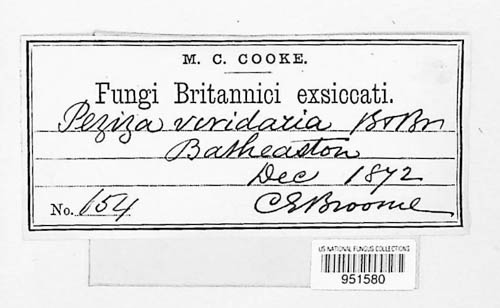 M. C. COOKE.
Fungi Britannici exsiccati.
Peziza viridaria B&Br
Batheaston
Dec 1872
No. 154 CEBroome
US NATIONAL FUNGUS COLLECTIONS
951580